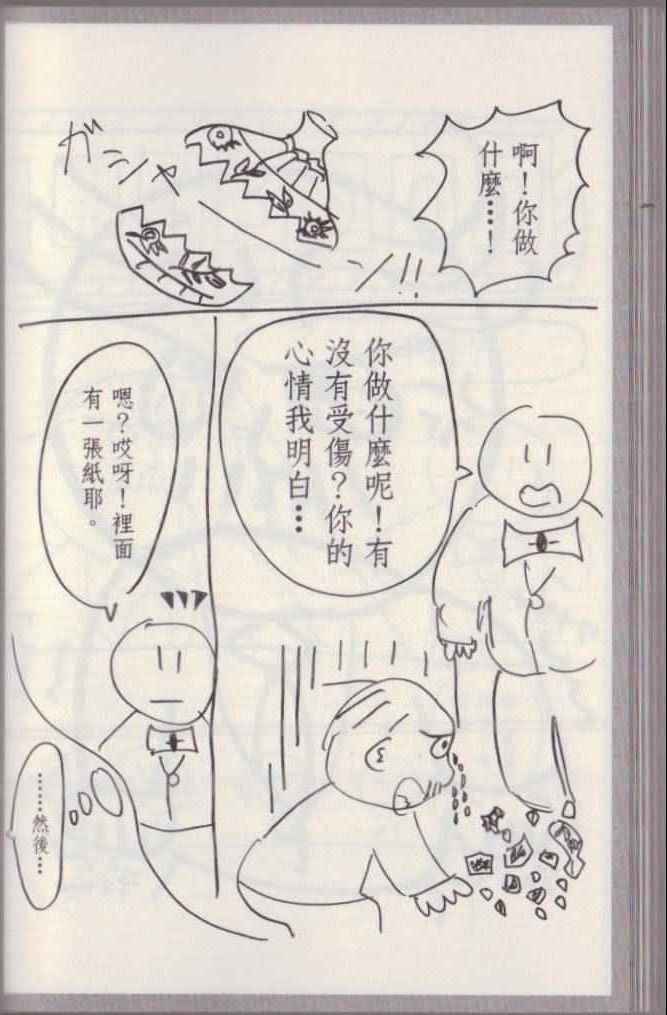 啊！你做
什麼…！
ガシャ
ン!!
你做什麼呢！有
沒有受傷？你的
心情我明白…
嗯？哎呀！裡面
有一張紙耶。
……然後…